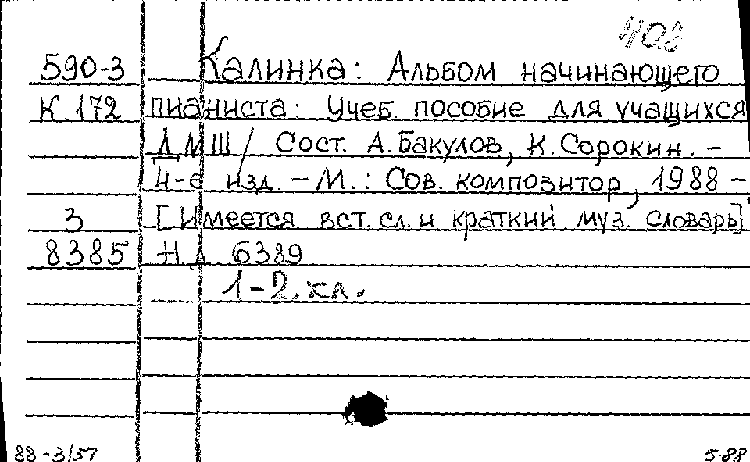 408
590-3 Калинка: Альбом начинающего
К 172 пианиста: Учеб. пособие для учащихся
ДМШ / Сост. А. Бакулов, К. Сорокин. –
4-е изд. – М.: Сов. композитор, 1988 –
3 [Имеется вст. сл. и краткий муз. словарь]
8385 Н Д 6389
1-2. кл.
88-3/57 5-88